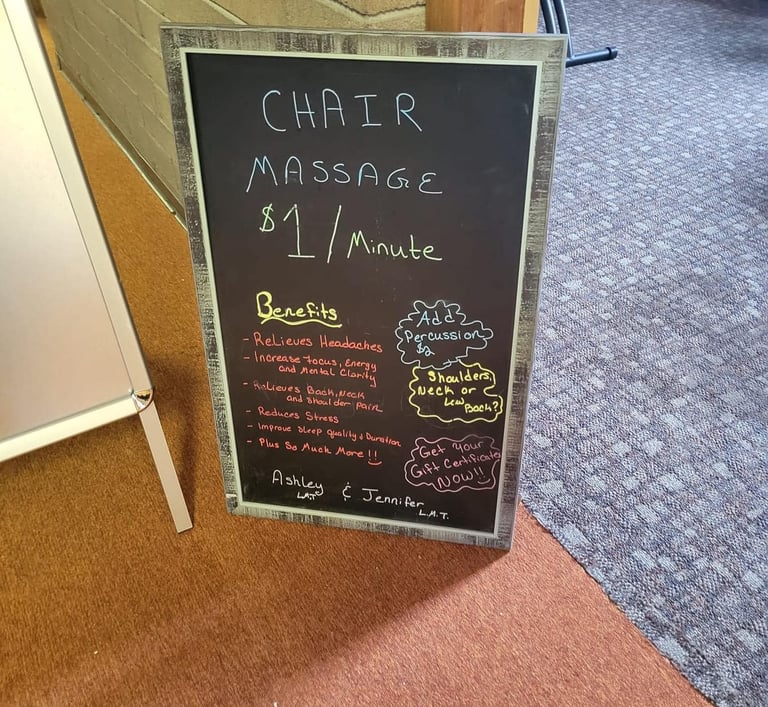 CHAIR
MASSAGE
$1/Minute
Benefits
- Relieves Headaches
- Increase Focus, Energy
and Mental Clarity
- Relieves Back, Neck
and Shoulder Pain
- Reduces Stress
- Improve Sleep Quality & Duration
- Plus So Much More!!
Add
Percussion
$2
Shoulders,
Neck or
Low
Back?
Get Your
Gift Certificate
NOW!!
Ashley & Jennifer
LMT L.M.T.